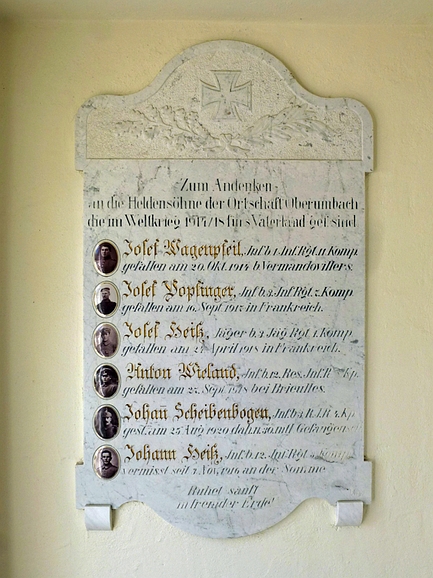 Zum Andenken
an die Heldensöhne der Ortschaft Oberumbach
die im Weltkrieg 1914/18 fürs Vaterland gef. sind.
Josef Wagenpfeil, Inf. b. 1. Inf. Rgt. 11. Komp.
gefallen am 20. Okt. 1914 b. Vermandovillers.
Josef Popfinger, Inf. b. 2. Inf. Rgt. 7. Komp.
gefallen am 16. Sept. in Frankreich.
Josef Heiß, Jäger b. 1. Jäg. Rgt. 1. Komp.
gefallen am April 1918 in Frankreich.
Anton Wieland, Inf. b. 12. Res. Inf. R. Kp.
gefallen am Sept. bei
Johañ Scheibenbogen, Kp.
gest. am 25. Aug. 1920 dah. Gefangensch.
Johann Heiß, Inf. b. 12. Inf. Rgt.
vermisst seit 7. Nov. 1916 an der Somme
Ruhet sanft
in fremder Erde!